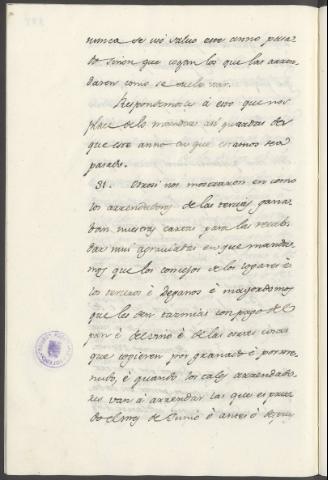 nunca se usó salvo este anno pasa-
do sinon que cogan los que las arren-
daren como se suele usar.
Respondemos á esto que nos
place de lo mandar asi guardar des
que este anno en que estamos sea
pasado.
31. Otrosi nos mostraron en como
los arrendadores de las tercias ganan
dan nuestras cartas para las recab-
dar mui agraviadas en que manda-
mos que los concejos de los logares é
los terceros é deganos é mayordomos
que les den tazmias con pago de el
pan é del vino é de las otras cosas
que cogieren por granado é por me-
nudo, é quando los tales arrendado-
res van á arrendar las que es pasa-
do el mes de Junio é antes é despues